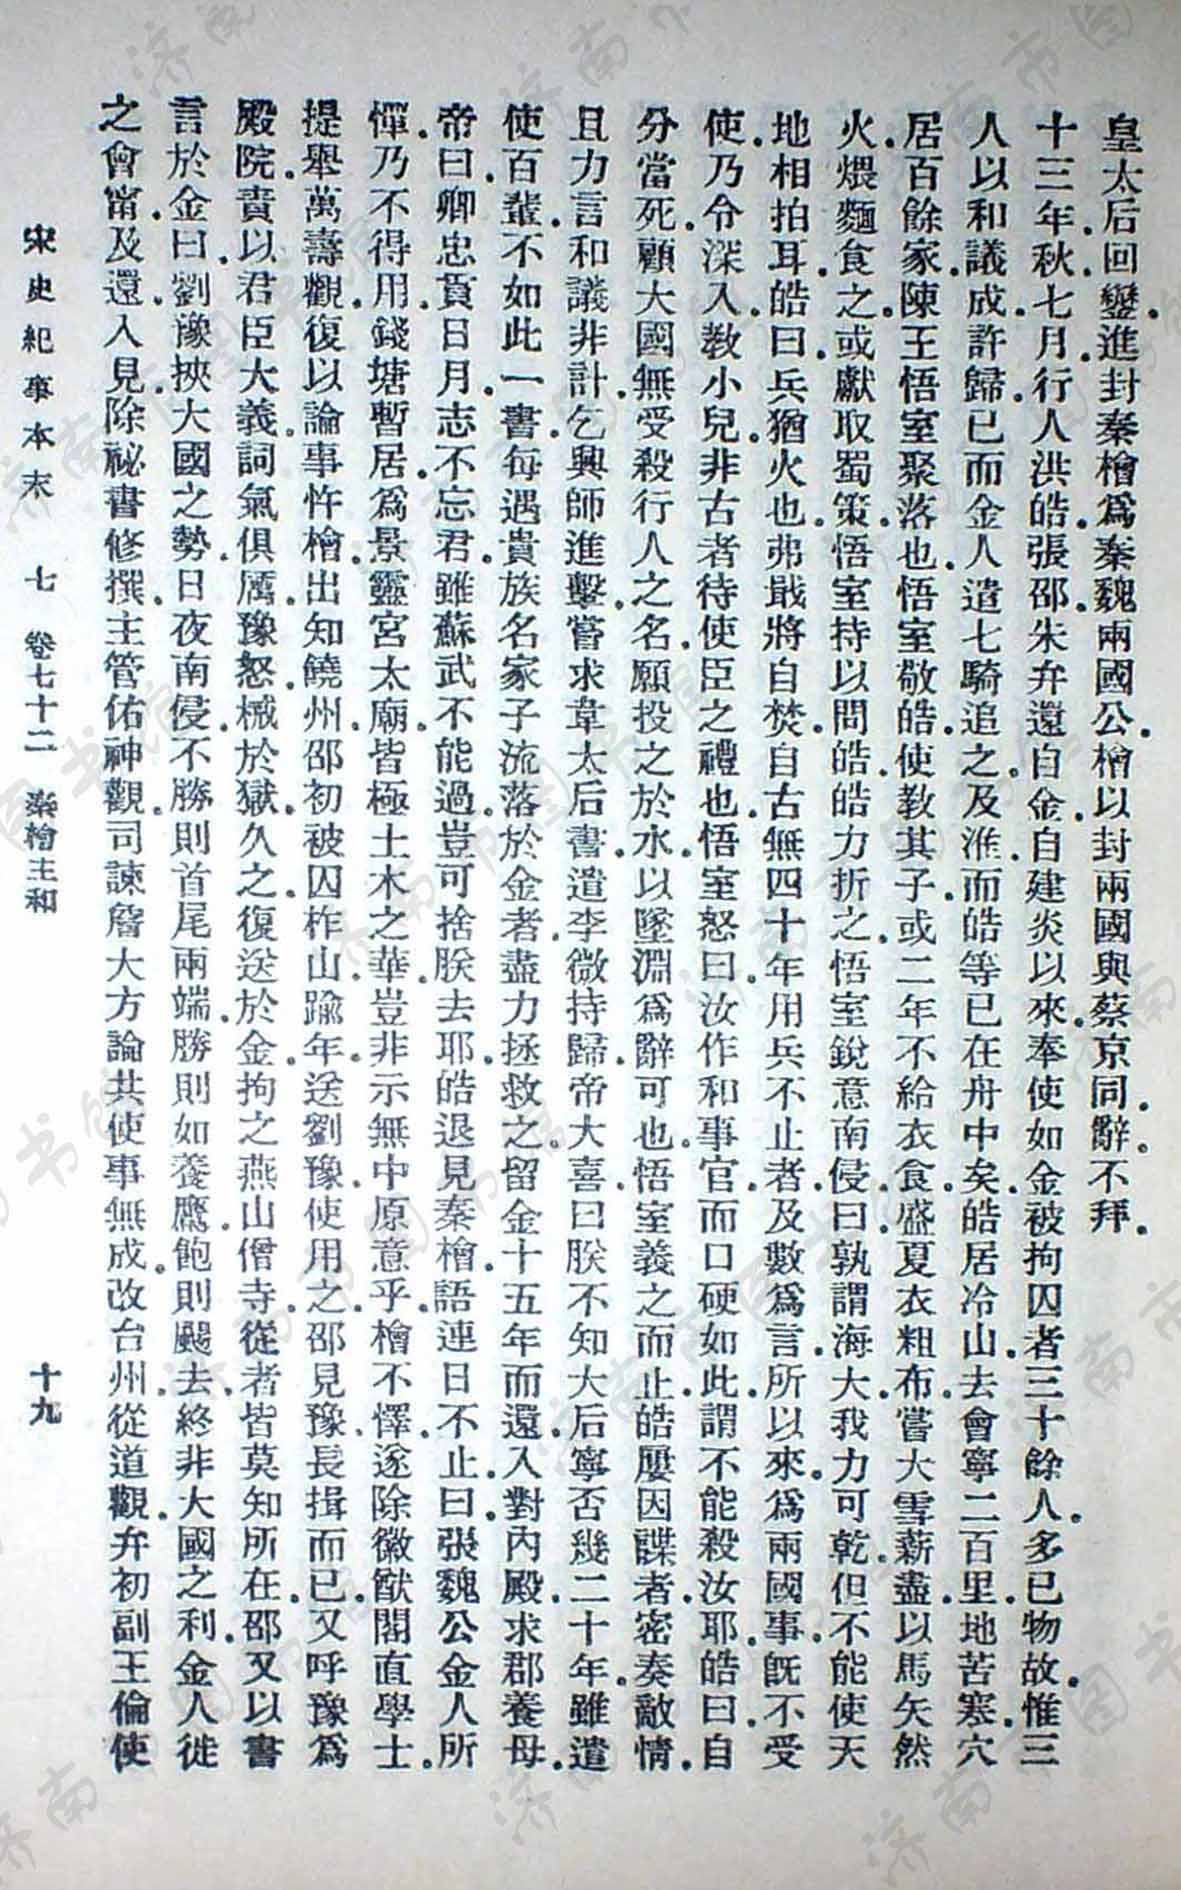 皇太后回鑾進封秦檜爲秦魏兩國公檜以封兩國與蔡京同辭不拜
十三年秋七月行人洪皓張邵朱弁還自金自建炎以來奉使如金被拘囚者三十餘人多已物故惟三
人以和議成許歸已而金人遣七騎追之及淮而皓等已在舟中矣皓居冷山去會寧二百里地苦寒穴
居百餘家陳王悟室聚落也悟室敬皓使教其子或二年不給衣食盛夏衣粗布嘗大雪薪盡以馬矢然
火煨麵食之或獻取蜀策悟室持以問皓皓力折之悟室銳意南侵曰孰謂海大我力可乾但不能使天
地相拍耳皓曰兵猶火也弗戢將自焚自古無四十年用兵不止者及數爲言所以來爲兩國事既不受
使乃令深入教小兒非古者待使臣之禮也悟室怒曰汝作和事官而口硬如此謂不能殺汝耶皓曰自
分當死顧大國無受殺行人之名願投之於水以墜淵爲辭可也悟室義之而止皓屢因諜者密奏敵情
且力言和議非計乞興師進擊嘗求韋太后書遣李微持歸帝大喜曰朕不知大后寧否幾二十年雖遣
使百輩不如此一書每遇貴族名家子流落於金者盡力拯救之留金十五年而還入對內殿求郡養母
帝曰卿忠貫日月志不忘君雖蘇武不能過豈可捨朕去耶皓退見秦檜語連日不止曰張魏公金人所
憚乃不得用錢塘暫居爲景靈宮太廟皆極土木之華豈非示無中原意乎檜不懌遂除徽猷閣直學士
提舉萬壽觀復以論事忤檜出知饒州邵初被囚柞山踰年送劉豫使用之邵見豫長揖而已又呼豫爲
殿院責以君臣大義詞氣俱厲豫怒械於獄久之復送於金拘之燕山僧寺從者皆莫知所在邵又以書
言於金曰劉豫挾大國之勢日夜南侵不勝則首尾兩端勝則如養鷹飽則颺去終非大國之利金人徙
之會甯及還入見除祕書修撰主管佑神觀司諫詹大方論其使事無成改台州崇道觀弁初副王倫使
宋史紀事本末 七 卷七十二 秦檜主和 十九